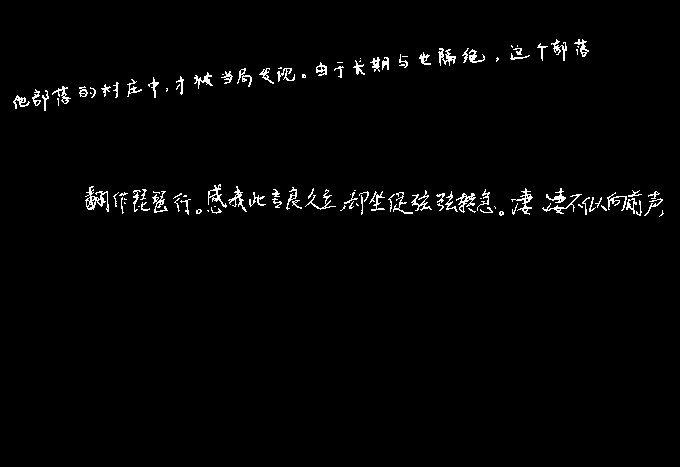 他部落的村庄中,才被当局发现。由于长期与世隔绝,这个部落
翻作琵琶行。感我此言良久立,却坐促弦弦转急。凄凄不似向前声,